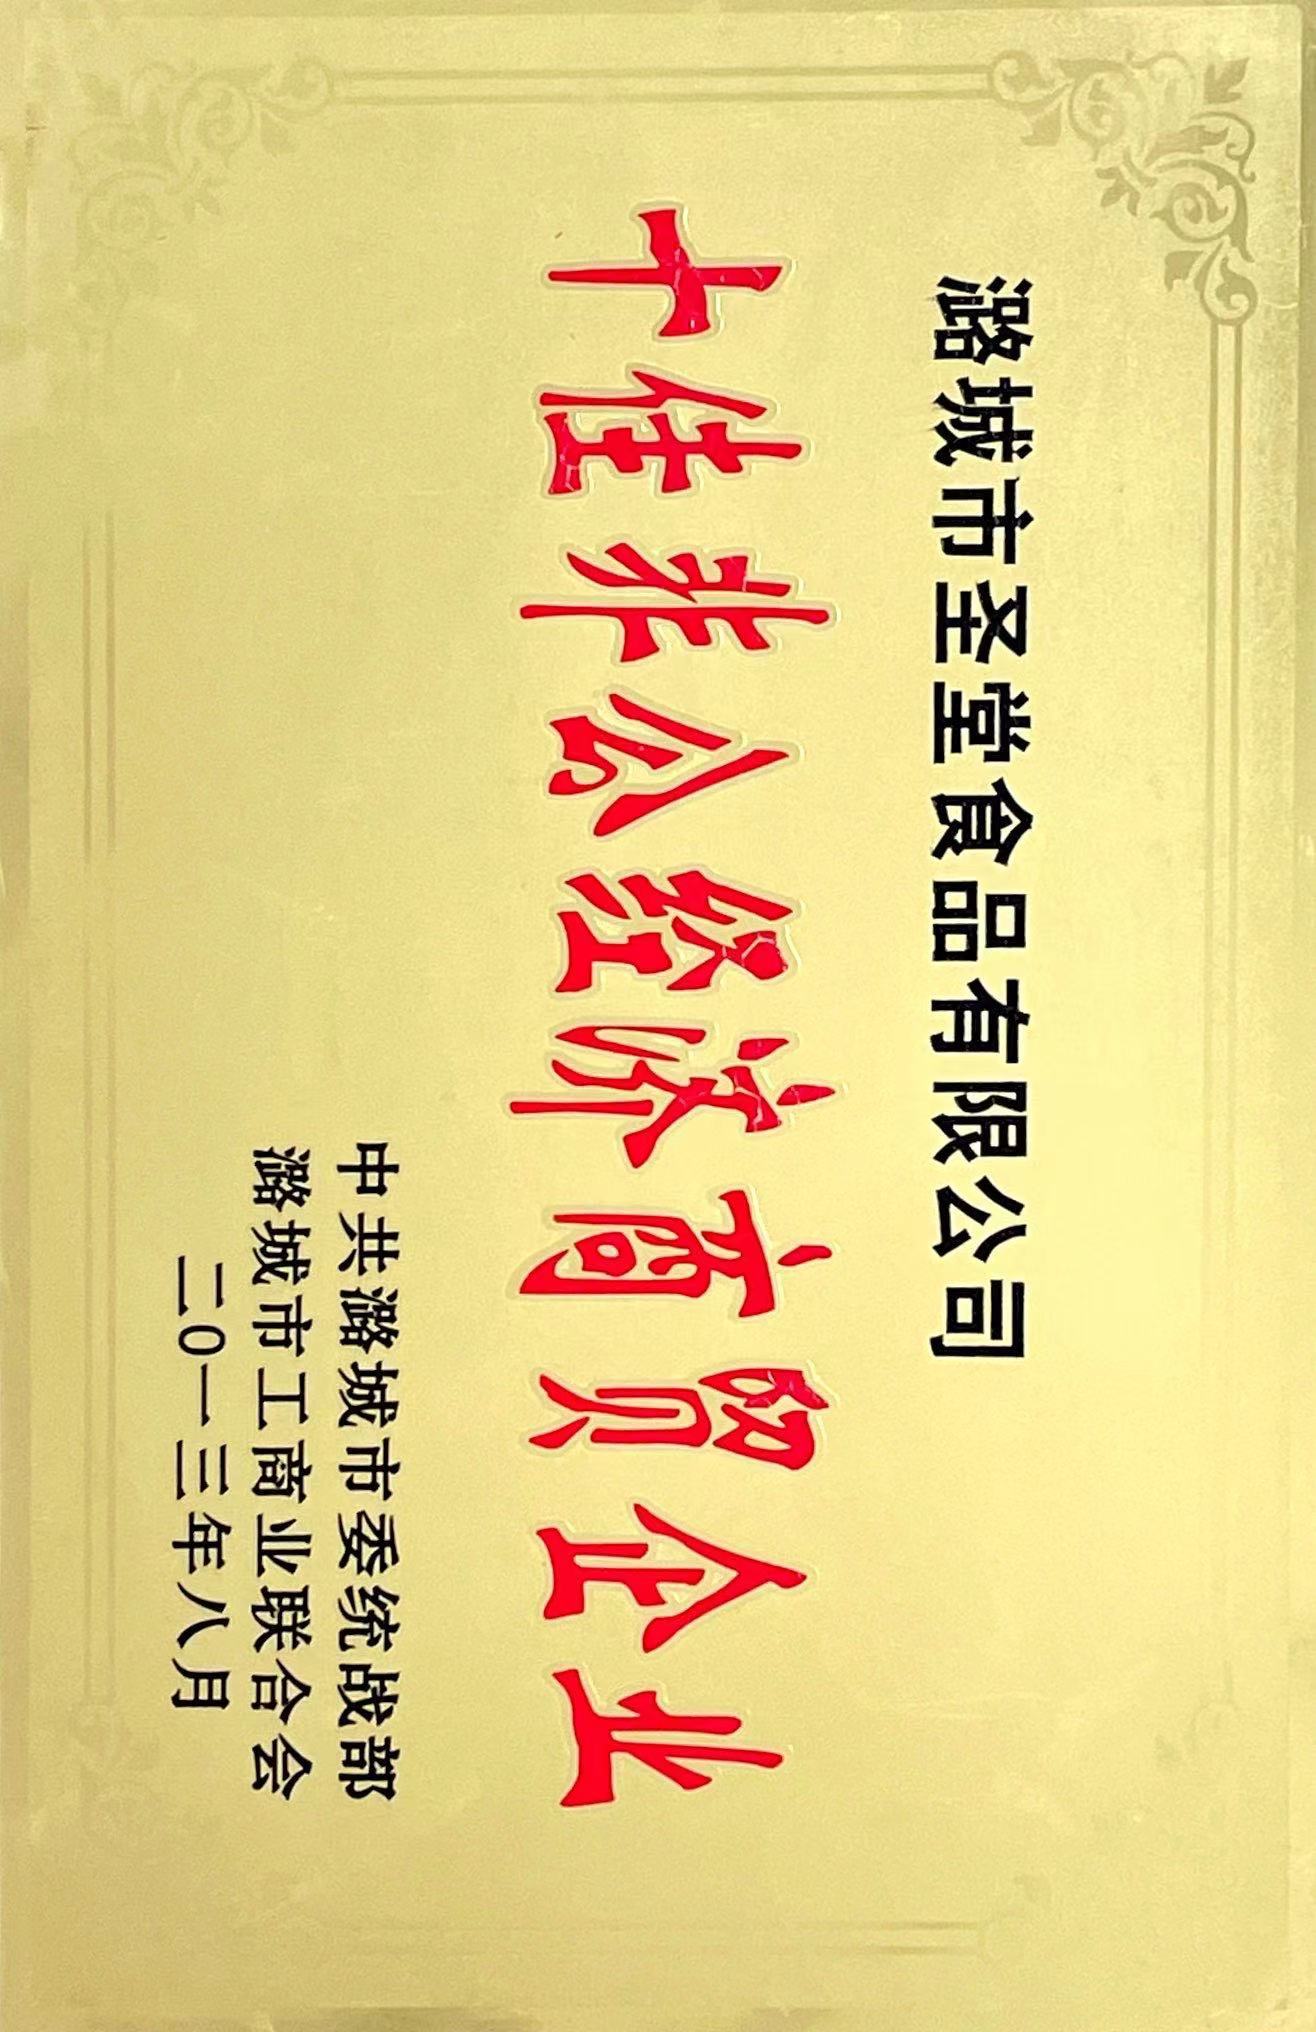 潞城市圣堂食品有限公司
十佳非公经济商贸企业
中共潞城市委统战部
潞城市工商业联合会
二0一三年八月